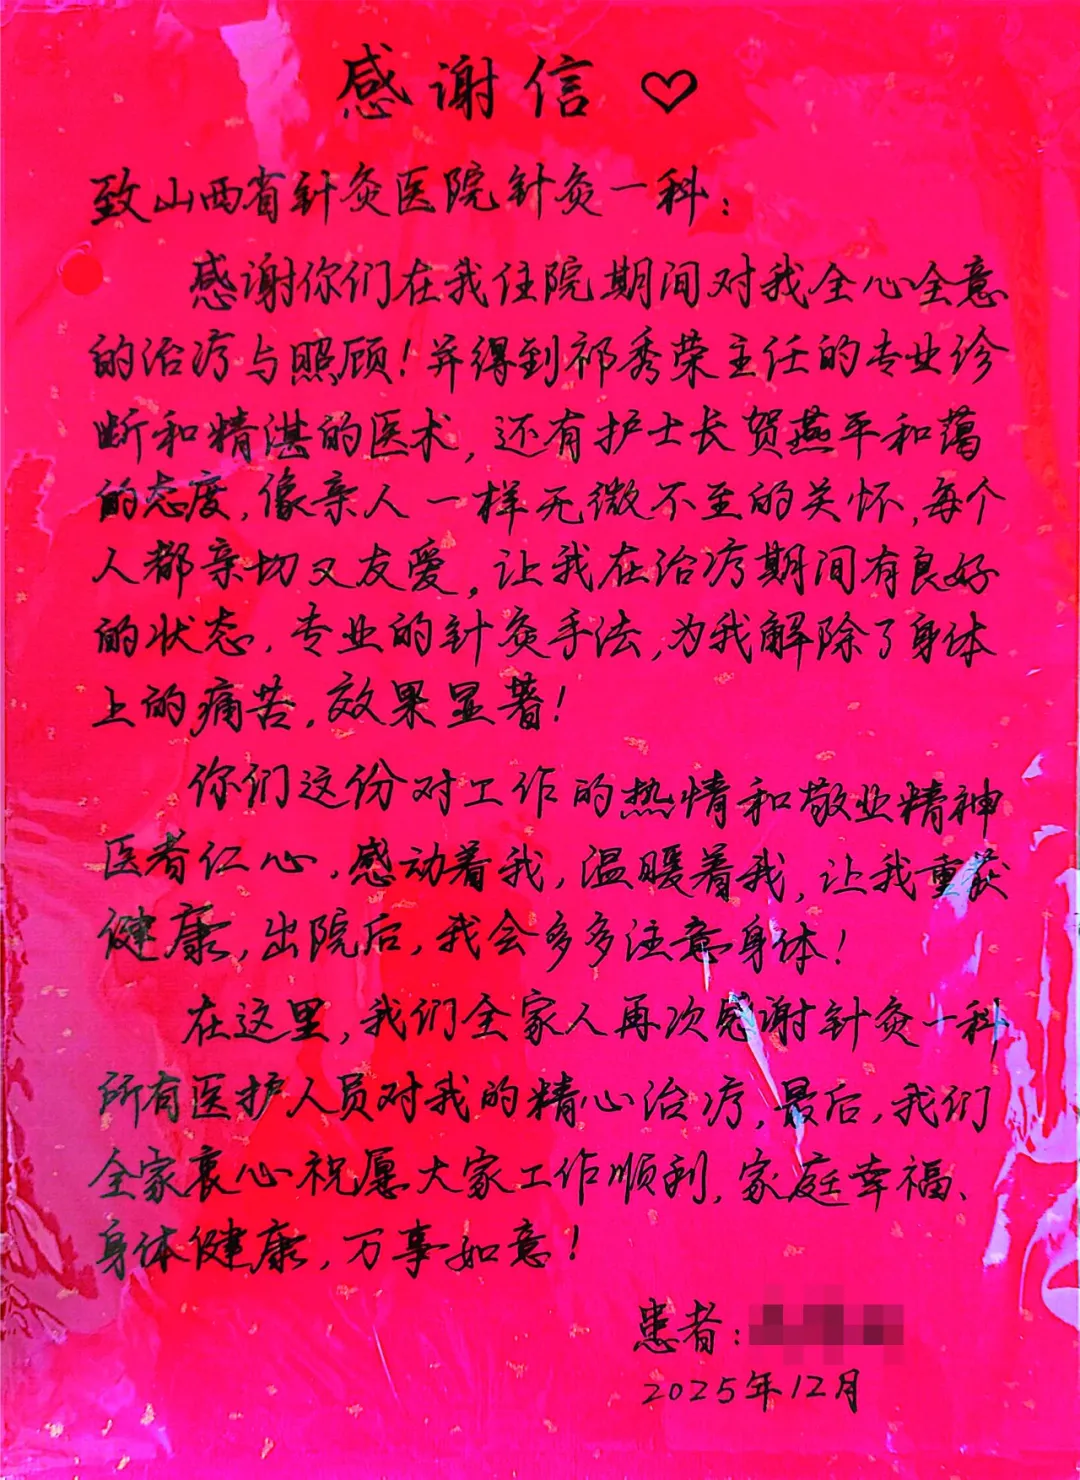 感谢信♡
致山西省针灸医院针灸一科：
感谢你们在我住院期间对我全心全意
的治疗与照顾！并得到祁秀荣主任的专业诊
断和精湛的医术，还有护士长贺燕平和蔼
的态度，像亲人一样无微不至的关怀，每个
人都亲切又友爱，让我在治疗期间有良好
的状态，专业的针灸手法，为我解除了身体
上的痛苦，效果显著！
你们这份对工作的热情和敬业精神
医者仁心，感动着我，温暖着我，让我重获
健康，出院后，我会多多注意身体！
在这里，我们全家人再次感谢针灸一科
所有医护人员对我的精心治疗，最后，我们
全家衷心祝愿大家工作顺利，家庭幸福、
身体健康，万事如意！
患者：
2025年12月